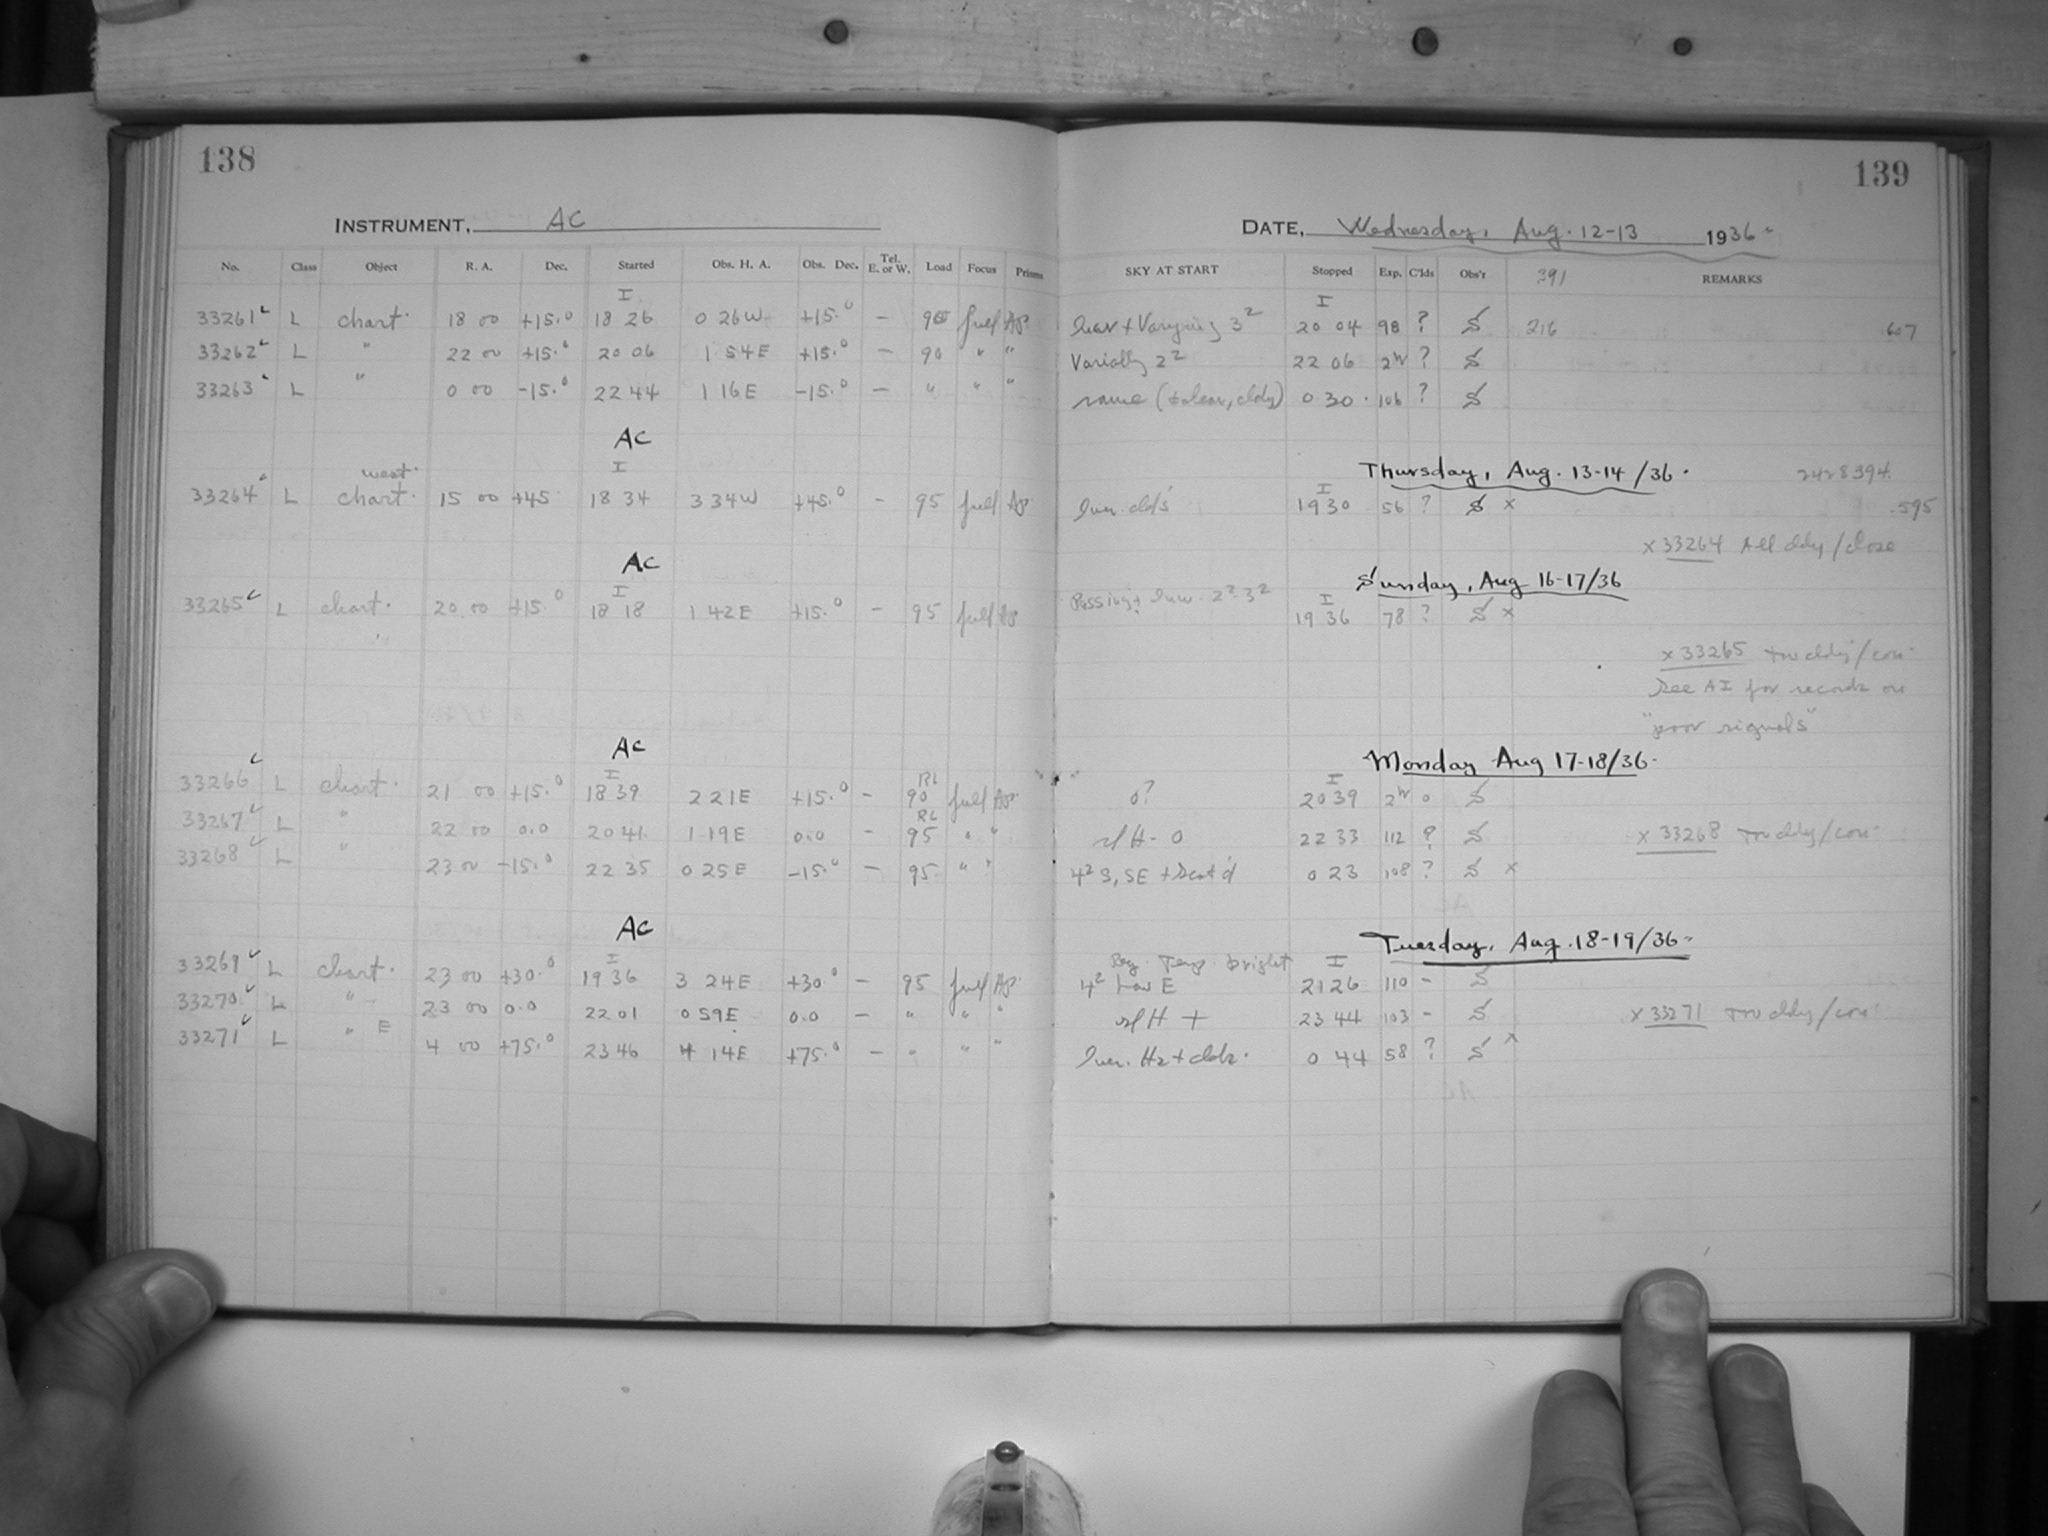 138
INSTRUMENT, AC
No. Class Object R. A. Dec. Started Obs. H. A. Obs. Dec. Tel. E. or W. Load Focus Prisms
I
33261 L chart. 18 00 +15.0 18 26 0 26W +15.0 - 90 full Ap.
33262 L " 22 00 +15.0 20 06 1 54E +15.0 - 90 " "
33263 L " 0 00 -15.0 22 44 1 16E -15.0 - " " "
AC
west. I
33264 L chart. 15 00 +45 18 34 3 34W +45.0 - 95 full Ap
AC
I
33265 L chart. 20 00 +15.0 18 18 1 42E +15.0 - 95 full Ap
AC
I RL
33266 L chart. 21 00 +15.0 18 39 2 21E +15.0 - 90 full Ap.
RL
33267 L " 22 00 0.0 20 41 1 19E 0.0 - 95 " "
33268 L " 23 00 -15.0 22 35 0 25E -15.0 - 95 " "
AC
I
33269 L chart. 23 00 +30.0 19 36 3 24E +30.0 - 95 full Ap.
33270 L " 23 00 0.0 22 01 0 59E 0.0 - " " "
33271 L " E 4 00 +75.0 23 46 4 14E +75.0 - " " "
139
DATE, Wednesday, Aug. 12-13 1936
SKY AT START Stopped Exp. C'lds Obs'r 391 REMARKS
I
+ Varying 3² 20 04 98 ? S 216 .607
Variably 2² 22 06 2h ? S
same (+clear, cldy) 0 30 106 ? S
Thursday, Aug. 13-14/36. 2428394.
I
19 30 56 ? S x .595
x 33264 All cldy/close
Sunday, Aug 16-17/36
Passing + 2² 3² I
19 36 78 ? S x
x 33265 cldy/
See AI for records on
"poor signals"
Monday Aug 17-18/36.
I
0? 20 39 2h 0 S
H - 0 22 33 112 ? S x 33268 cldy/
4² S, SE + Scat'd 0 23 108 ? S x
Tuesday, Aug. 18-19/36
Temp. bright I
4² Low E 21 26 110 - S
H + 23 44 103 - S x 33271 cldy/
Hz + 0 44 58 ? S x